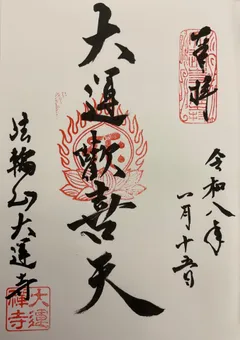 奉拝
令和八年
一月十五日
大運歡喜天
法輪山大運寺
大運
禅寺